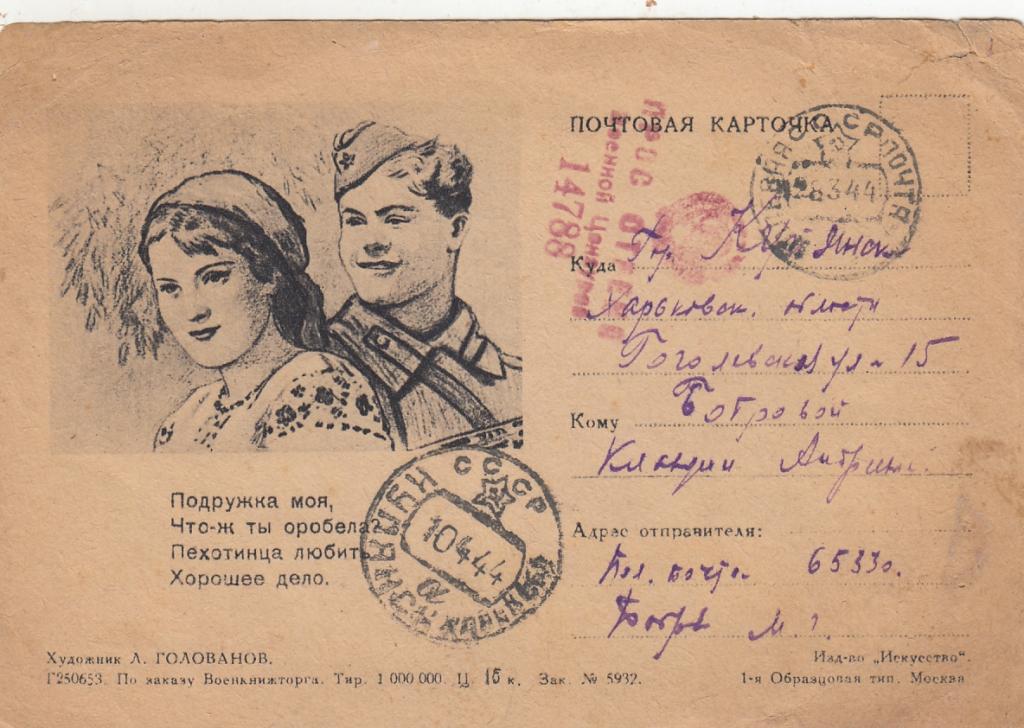 ПОЧТОВАЯ КАРТОЧКА
СССР ПОЧТА
28.3.44
Военной Цензурой
14788
Куда Гр. Купянск
Харьковск. области
Гоголевская ул. 15
Кому Бобровой
Клавдии
Адрес отправителя:
Пол. почта 65330.
М. г.
Подружка моя,
Что-ж ты оробела?
Пехотинца любить
Хорошее дело.
СССР
10.4.44
а
КУПЯНСК ХАРЬКОВ
Художник Л. ГОЛОВАНОВ.
Г250653. По заказу Военкнижторга. Тир. 1 000 000. Ц. 15 к. Зак. № 5932.
Изд-во „Искусство“.
1-я Образцовая тип. Москва